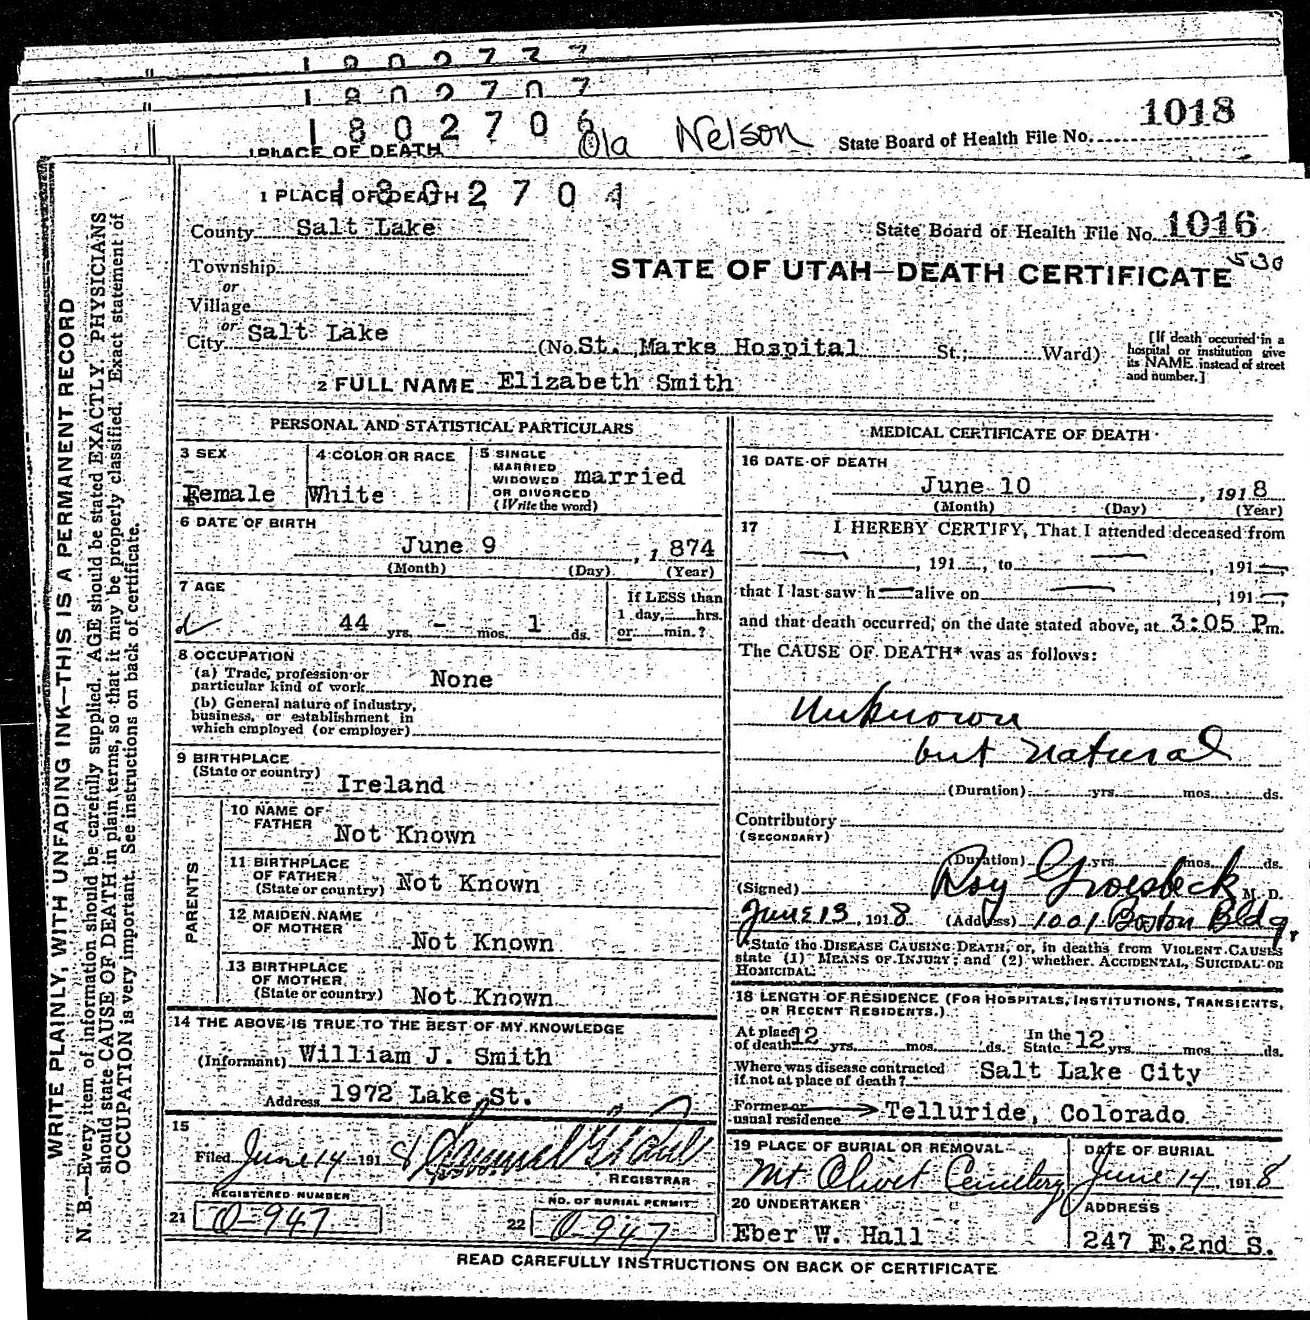 1 8 0 2 7 0 7
1 8 0 2 7 0 6
Ola Nelson
State Board of Health File No. 1018
PLACE OF DEATH
1 8 0 2 7 0 4
1 PLACE OF DEATH
County Salt Lake
State Board of Health File No. 1016
530
Township
or
Village
STATE OF UTAH—DEATH CERTIFICATE
or
City Salt Lake (No. St. Marks Hospital St.; Ward)
[If death occurred in a hospital or institution give its NAME instead of street and number.]
2 FULL NAME Elizabeth Smith
PERSONAL AND STATISTICAL PARTICULARS
3 SEX
Female
4 COLOR OR RACE
White
5 SINGLE
MARRIED
WIDOWED
OR DIVORCED
(Write the word)
married
6 DATE OF BIRTH
June 9, 1874
(Month) (Day) (Year)
7 AGE
44 yrs. - mos. 1 ds.
If LESS than
1 day, hrs.
or min.?
8 OCCUPATION
(a) Trade, profession or
particular kind of work None
(b) General nature of industry,
business, or establishment in
which employed (or employer)
9 BIRTHPLACE
(State or country) Ireland
PARENTS
10 NAME OF
FATHER Not Known
11 BIRTHPLACE
OF FATHER
(State or country) Not Known
12 MAIDEN NAME
OF MOTHER
Not Known
13 BIRTHPLACE
OF MOTHER
(State or country) Not Known
14 THE ABOVE IS TRUE TO THE BEST OF MY KNOWLEDGE
(Informant) William J. Smith
Address 1972 Lake St.
15
Filed June 14 1918
REGISTRAR
REGISTERED NUMBER
21 0-947
NO. OF BURIAL PERMIT
22 0-947
MEDICAL CERTIFICATE OF DEATH
16 DATE OF DEATH
June 10, 1918
(Month) (Day) (Year)
17 I HEREBY CERTIFY, That I attended deceased from
— , 191 , to — , 191 —,
that I last saw h — alive on — , 191 —,
and that death occurred, on the date stated above, at 3:05 Pm.
The CAUSE OF DEATH* was as follows:
Unknown
but natural
(Duration) yrs. mos. ds.
Contributory
(SECONDARY)
(Duration) yrs. mos. ds.
(Signed) Roy Groesbeck M. D.
June 13, 1918 (Address) 1001 Boston Bldg.
*State the DISEASE CAUSING DEATH, or, in deaths from VIOLENT CAUSES
state (1) MEANS OF INJURY; and (2) whether ACCIDENTAL, SUICIDAL OR
HOMICIDAL.
18 LENGTH OF RESIDENCE (FOR HOSPITALS, INSTITUTIONS, TRANSIENTS,
OR RECENT RESIDENTS.)
At place
of death 12 yrs. mos. ds.
In the
State 12 yrs. mos. ds.
Where was disease contracted
if not at place of death? Salt Lake City
Former or
usual residence Telluride, Colorado
19 PLACE OF BURIAL OR REMOVAL
Mt Olivet Cemetery
DATE OF BURIAL
June 14, 1918
20 UNDERTAKER
Eber W. Hall
ADDRESS
247 E.2nd S.
READ CAREFULLY INSTRUCTIONS ON BACK OF CERTIFICATE
WRITE PLAINLY, WITH UNFADING INK—THIS IS A PERMANENT RECORD
N. B.—Every item of information should be carefully supplied. AGE should be stated EXACTLY. PHYSICIANS
should state CAUSE OF DEATH in plain terms, so that it may be properly classified. Exact statement of
OCCUPATION is very important. See instructions on back of certificate.